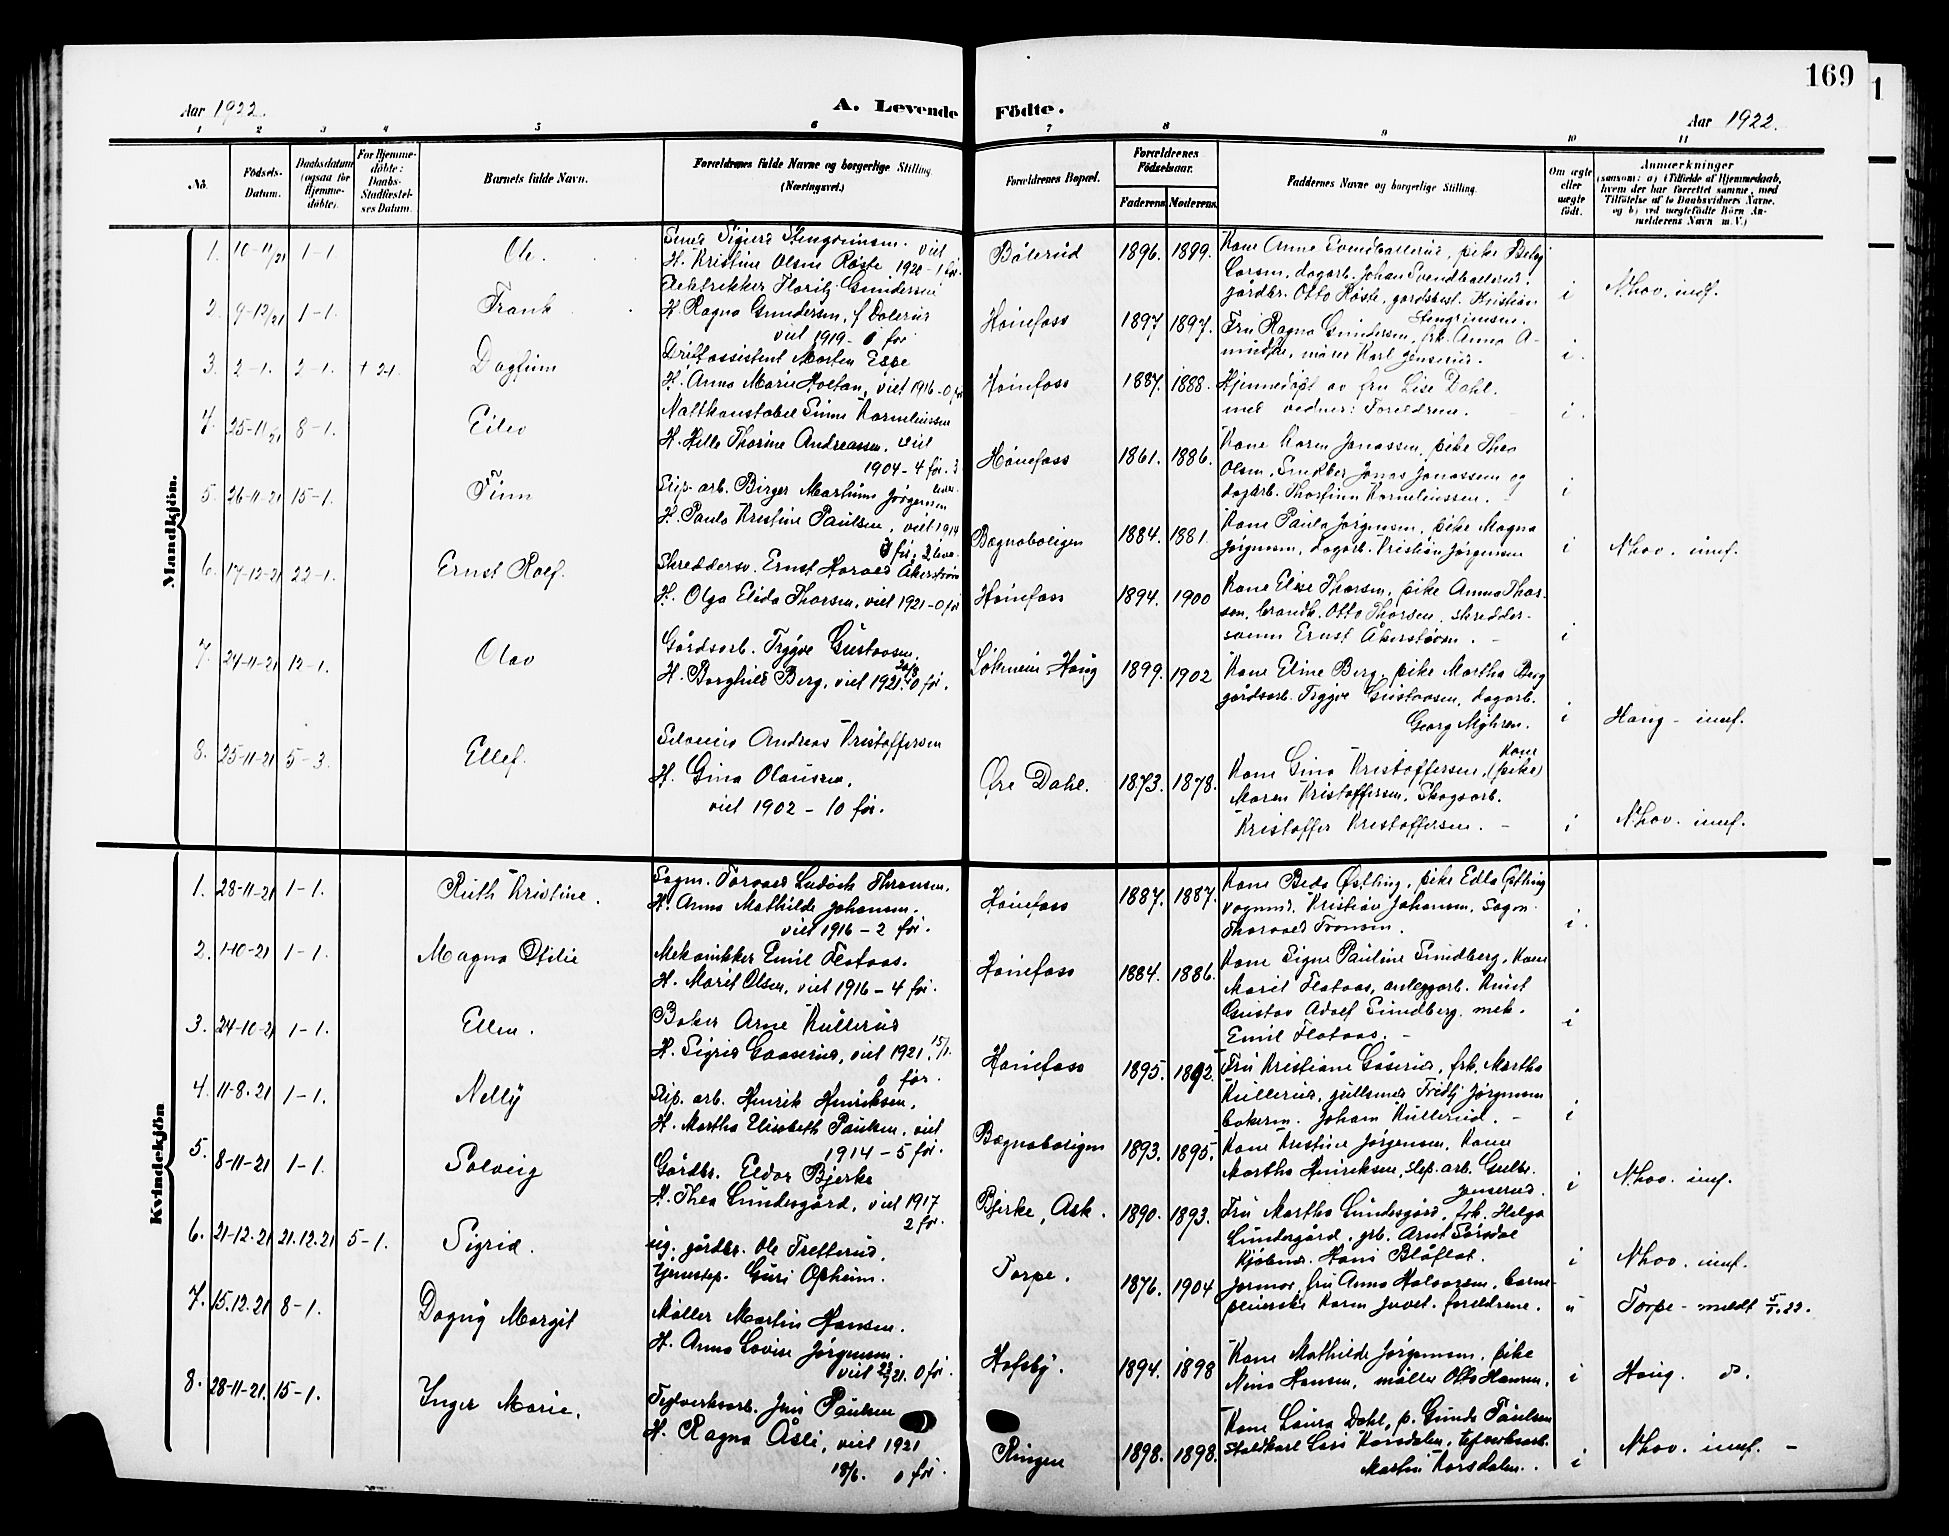 169
Aar 1922.
A. Levende Födte.
Aar 1922.
1 2 3 4 5 6 7 8 9 10 11
No.
Födsels-Datum.
Daabsdatum (ogsaa for Hjemme-döbte).
For Hjemme-döbte: Daabs-Stadfæstel-ses Datum.
Barnets fulde Navn.
Forældrenes fulde Navne og borgerlige Stilling (Næringsvei.)
Forældrenes Bopæl.
Forældrenes Födselsaar.
Faderens Moderens
Faddernes Navne og borgerlige Stilling.
Om ægte eller uægte födt.
Anmærkninger
(saasom: a) i Tilfælde af Hjemmedaab,
hvem der har forrettet samme, med
Tilföielse af to Daabsvidners Navne,
og b) ved uægtefödte Börn An-
melderens Navn m. V.)
Mandkjön.
1. 10-11/21 1-1. Ole.
H. Kristine Olsen Røste 1920-1 før.
Bålerud 1896. 1899.
gårdbr. Otto Røste, Kristian
i Nhov. innf.
2. 9-12/21 1-1. Frank
H. Ragna Gundersen, f Dolerud
viet 1919-0 før
Hønefoss 1897 1897.
Fru Ragna Gundersen, frk. Anna
i.
3. 2-1. 2-1. + 2-1. Dagfinn
Driftassistent Morten Espe
H. Anna Marie Hoftan, viet 1916-0 før
Hønefoss 1887. 1888.
Hjemmedøpt av fru Lise Dahl.
med vidner: Foreldrene.
i.
4. 25-11/21 8-1. Eilev
Nattkonstabel Sinus Korneliussen
H. Helle Thorine Andreassen, viet
1904-4 før. 3
Hønefoss 1861. 1886.
Kone Karen Jonassen, pike Thea
Olsen, Jonas Jonassen og
dagarb. Thorfinn Korneliussen.
i
5. 26-11-21 15-1. Finn
Slip. arb. Birger Martinus Jørgensen
H. Paula Kristine Paulsen, viet 1914
Bægnaboligen 1884. 1881.
Kone Paula Jørgensen, pike Magna
Jørgensen, dagarb. Kristian Jørgensen
i Nhov. innf.
6. 17-12-21 22-1. Ernst Rolf.
Skreddersv. Ernst Harald Åkerstrøm
H. Olga Elida Thorsen, viet 1921-0 før
Hønefoss 1894. 1900
Kone Elise Thorsen, pike Anna Thor-
sen, brandk. Otto Thorsen, skredder-
svenn Ernst Åkerstrøm. -
i
7. 24-11-21 12-1. Olav
Gårdsarb. Trygve Gustavsen
H. Borghild Berg, viet 1921. 0 før.
Løkmoen Haug 1899. 1902
Kone Eline Berg, pike Martha Berg
gårdsarb. Trygve Gustavsen, dagarb.
Georg Myhren.
i Haug - innf.
8. 25-11-21 5-3. Ellef.
Andreas Kristoffersen
H. Gina Olausen,
viet 1902 - 10 før.
Øre Dahl. 1873. 1878.
Kone Gina Kristoffersen, (pike) Kone
Maren Kristoffersen, Skogsarb.
Kristoffer Kristoffersen. -
i Nhov. innf.
Kvindekjön
1. 28-11-21 1-1. Ruth Kristine.
Sagm. Torvald Ludvik Thronsen.
H. Anna Mathilde Johansen.
viet 1916 - 2 før.
Hønefoss 1887. 1887.
Kone Beda Østling, pike Edla Østling
vognmd. Kristian Johansen, Sagm.
Thorvald Tronsen.
i.
2. 1-10-21 1-1. Magna Otilie
Mekanikker Emil Flataas.
H. Marit Olsen, viet 1916 - 4 før.
Hønefoss 1884. 1886.
Kone Signe Pauline Sundberg, Kone
Marit Flataas, anleggarb. Knut
Gustav Adolf Sundberg. mek.
Emil Flataas. -
i
3. 24-10-21 1-1. Ellen.
Baker Arne Kullerud
H. Sigrid Gaaserud, viet 1921. 15/1.
0 før.
Hønefoss 1895. 1892.
Fru Kristiane Gåserud, frk. Martha
Kullerud, gullsmed Fridtj. Jørgensen
bakerm. Johan Kullerud. -
i
4. 11-8.21 1-1. Nelly
Slip. arb. Henrik Henriksen,
H. Martha Elisabeth Paulsen, viet
1914 - 5 før.
Bægnaboligen 1893. 1895.
Kone Kristine Jørgensen, Kone
Martha Henriksen, slip. arb. Gulbr.
Jenserud.
i Nhov. innf.
5. 8-11-21 1-1. Solveig
Gårdbr. Eldor Bjerke
H. Thea Lundesgård, viet 1917
2 før.
Bjerke, Ask. 1890. 1893.
Fru Martha Lundesgård, frk. Helga
Lundesgård, grb. Arnt Sørsdal
Kjøbmd. Hans Blåflat.
i Nhov. innf.
6. 21-12.21 21.12.21 5-1. Sigrid.
ug. gårdbr. Ole Tretterud.
tjenestep. Guri Opheim.
Torpe. 1876. 1904
Jormor, fru Anna Halvorsen, barne-
pleierske Karen Juvet. foreldrene.
u Torpe - meldt 5/1.22.
7. 15.12.21 8-1. Dagny Margit
Møller Martin Hansen.
H. Anna Lovise Jørgensen.
viet 21. 0 før.
Hofsby. 1894. 1898
Kone Mathilde Jørgensen, pike
Nina Hansen, møller Otto Hansen.
i Haug. do.
8. 28-11-21. 15-1. Inger Marie.
Teglverksarb. Jens Paulsen
H. Ragna Åsli, viet 1921
18/6. 0 før.
Ringen 1898. 1898.
Kone Laura Dahl, p. Gunda Paulsen
Staldkarl Lars Korsdalen, teglverksarb.
Martin Korsdalen.
i Nhov. innf. -